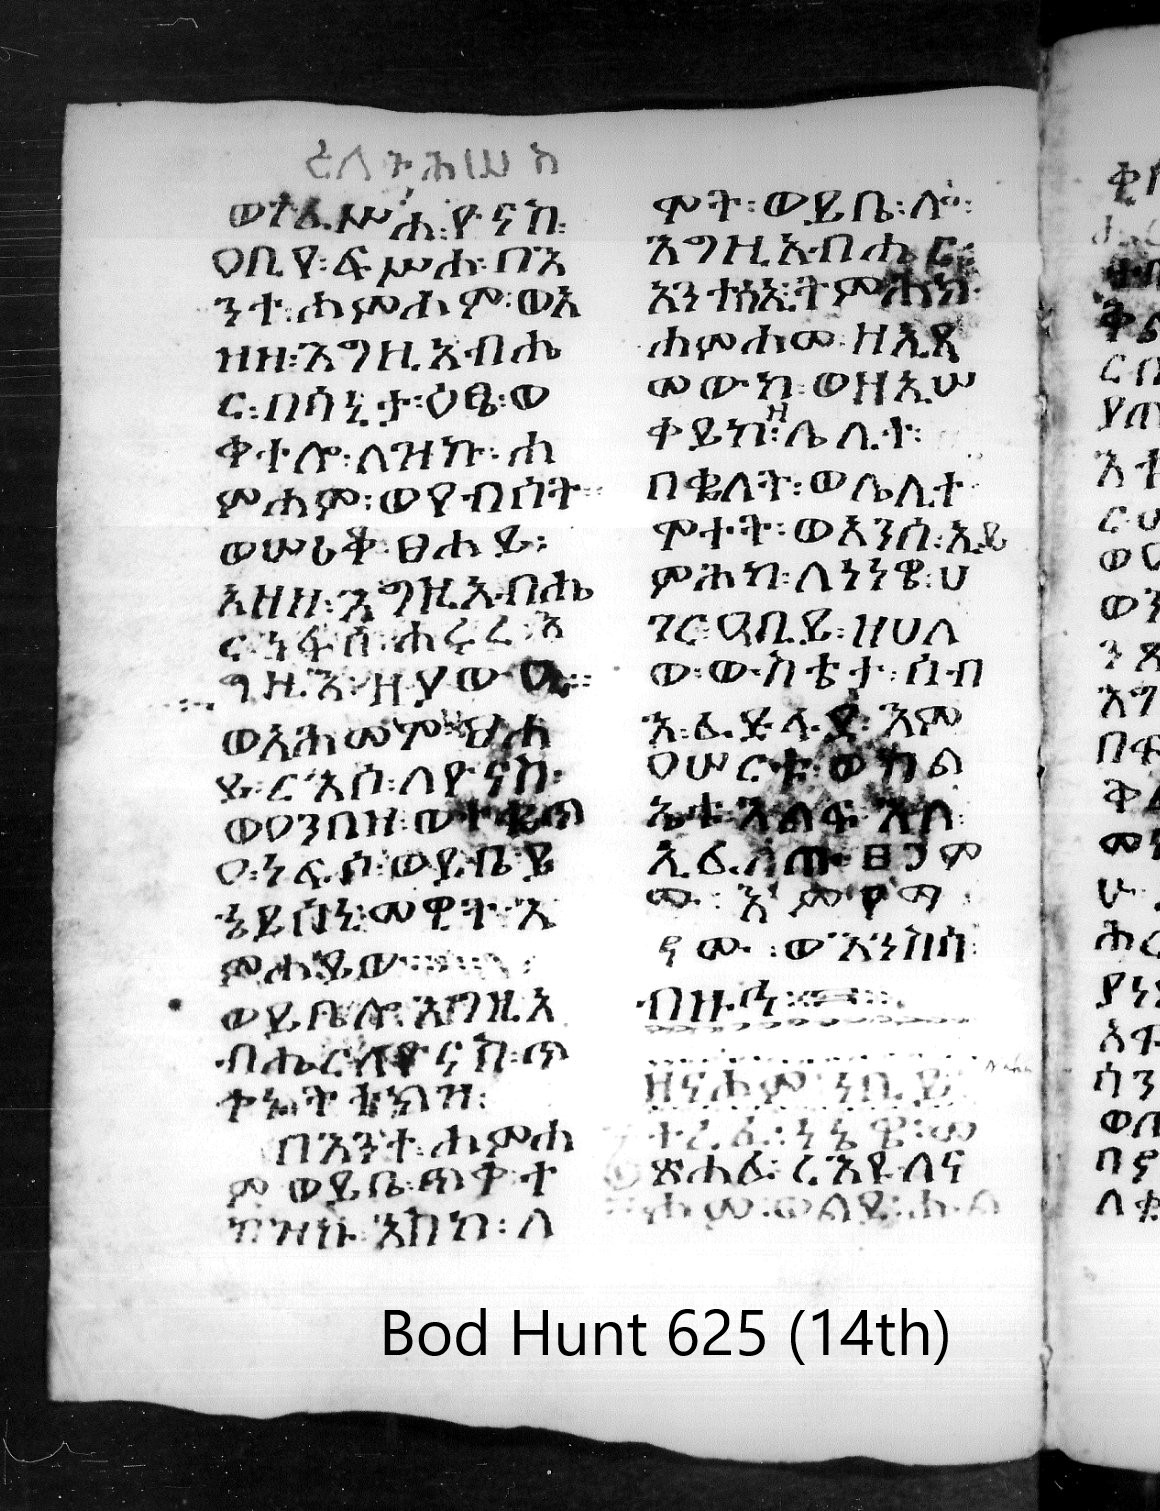 ወተፈሥሐ፡ዮናስ፡
ዐቢየ፡ፍሥሐ፡በእ
ንተ፡ሐምሐም፡ወአ
ዘዘ፡እግዚአብሔ
ር፡በሳኒታ፡ዕፄ፡ወ
ቀተሎ፡ለዝኩ፡ሐ
ምሐም፡ወየብሰት፡
ወሠሪቆ፡ፀሐይ፡
አዘዘ፡እግዚአብሔ
ር፡ነፋሰ፡ሐሩረ፡
ወአሕመሞ፡ፀሐ
ይ፡ርእሶ፡ለዮናስ፡
ወዐንበዘ፡ወተቈጥ
ዐ፡ነፍሶ፡ወይቤ፡ይ
ኄይሰኒ፡መዊት፡እ
ምሐይው
ወይቤሎ፡እግዚአ
ብሔር፡ለዮናስ፡ጥ
ቀ፡
በእንተ፡ሐምሐ
ም፡ወይቤ፡ጥቀ፡ተ
ከዝኩ፡እስከ፡ለ
ሞት፡ወይቤ፡ሎ፡
እግዚአብሔር፡
አንተሰአ፡ትምሕክ፡
ሐምሐመ፡ዘኢጻ
መውክ፡ወዘኢሠ
ቀይከ፡ዘሌሊት፡
በቈለት፡ወሌሊተ
ሞተት፡ወአንሰ፡ኢይ
ምሕክ፡ለነነዌ፡ሀ
ገር፡ዓቢይ፡ዘሀለ
ው፡ውስቴታ፡ሰብ
እ፡ፈድፋደ፡እም
ዐሠርቱ፡ወክል
ኤቱ፡እልፍ፡እለ፡
ኢፈለጡ፡ፀጋም
ሙ፡እምየማ
ኖሙ፡ወእንስሳ፡
ብዙኅ፡
ዘናሖም፡ነቢይ፡
ተረፈ፡ነኔዌ፡መ
ጽሐፈ፡ራእዩ፡ለና
ሖም፡ወልደ፡
Bod Hunt 625 (14th)